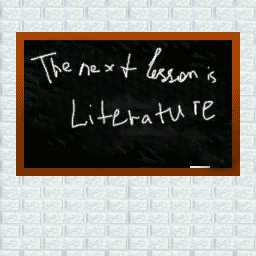 The next lesson is
Literature